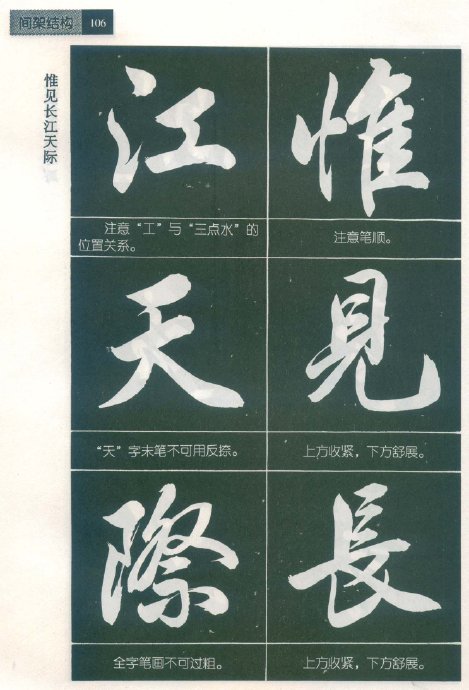 间架结构 106
惟见长江天际
惟
注意笔顺。
見
上方收紧，下方舒展。
長
上方收紧，下方舒展。
江
注意“工”与“三点水”的
位置关系。
天
“天”字末笔不可用反捺。
際
全字笔画不可过粗。